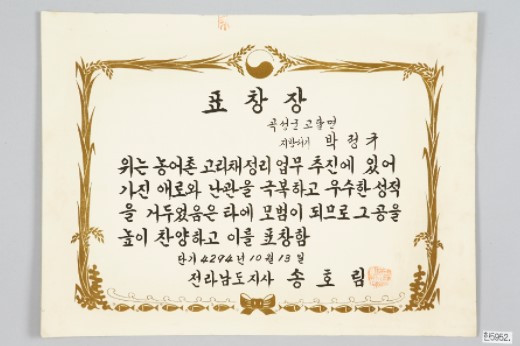 표창장
곡성군 고달면
지방서기 박정규
위는 농어촌 고리채정리 업무 추진에 있어
가진 애로와 난관을 극복하고 우수한 성적
을 거두었음은 타에 모범이 되므로 그 공을
높이 찬양하고 이를 표창함
단기 4294년 10월 13일
전라남도지사 송호림
5952.